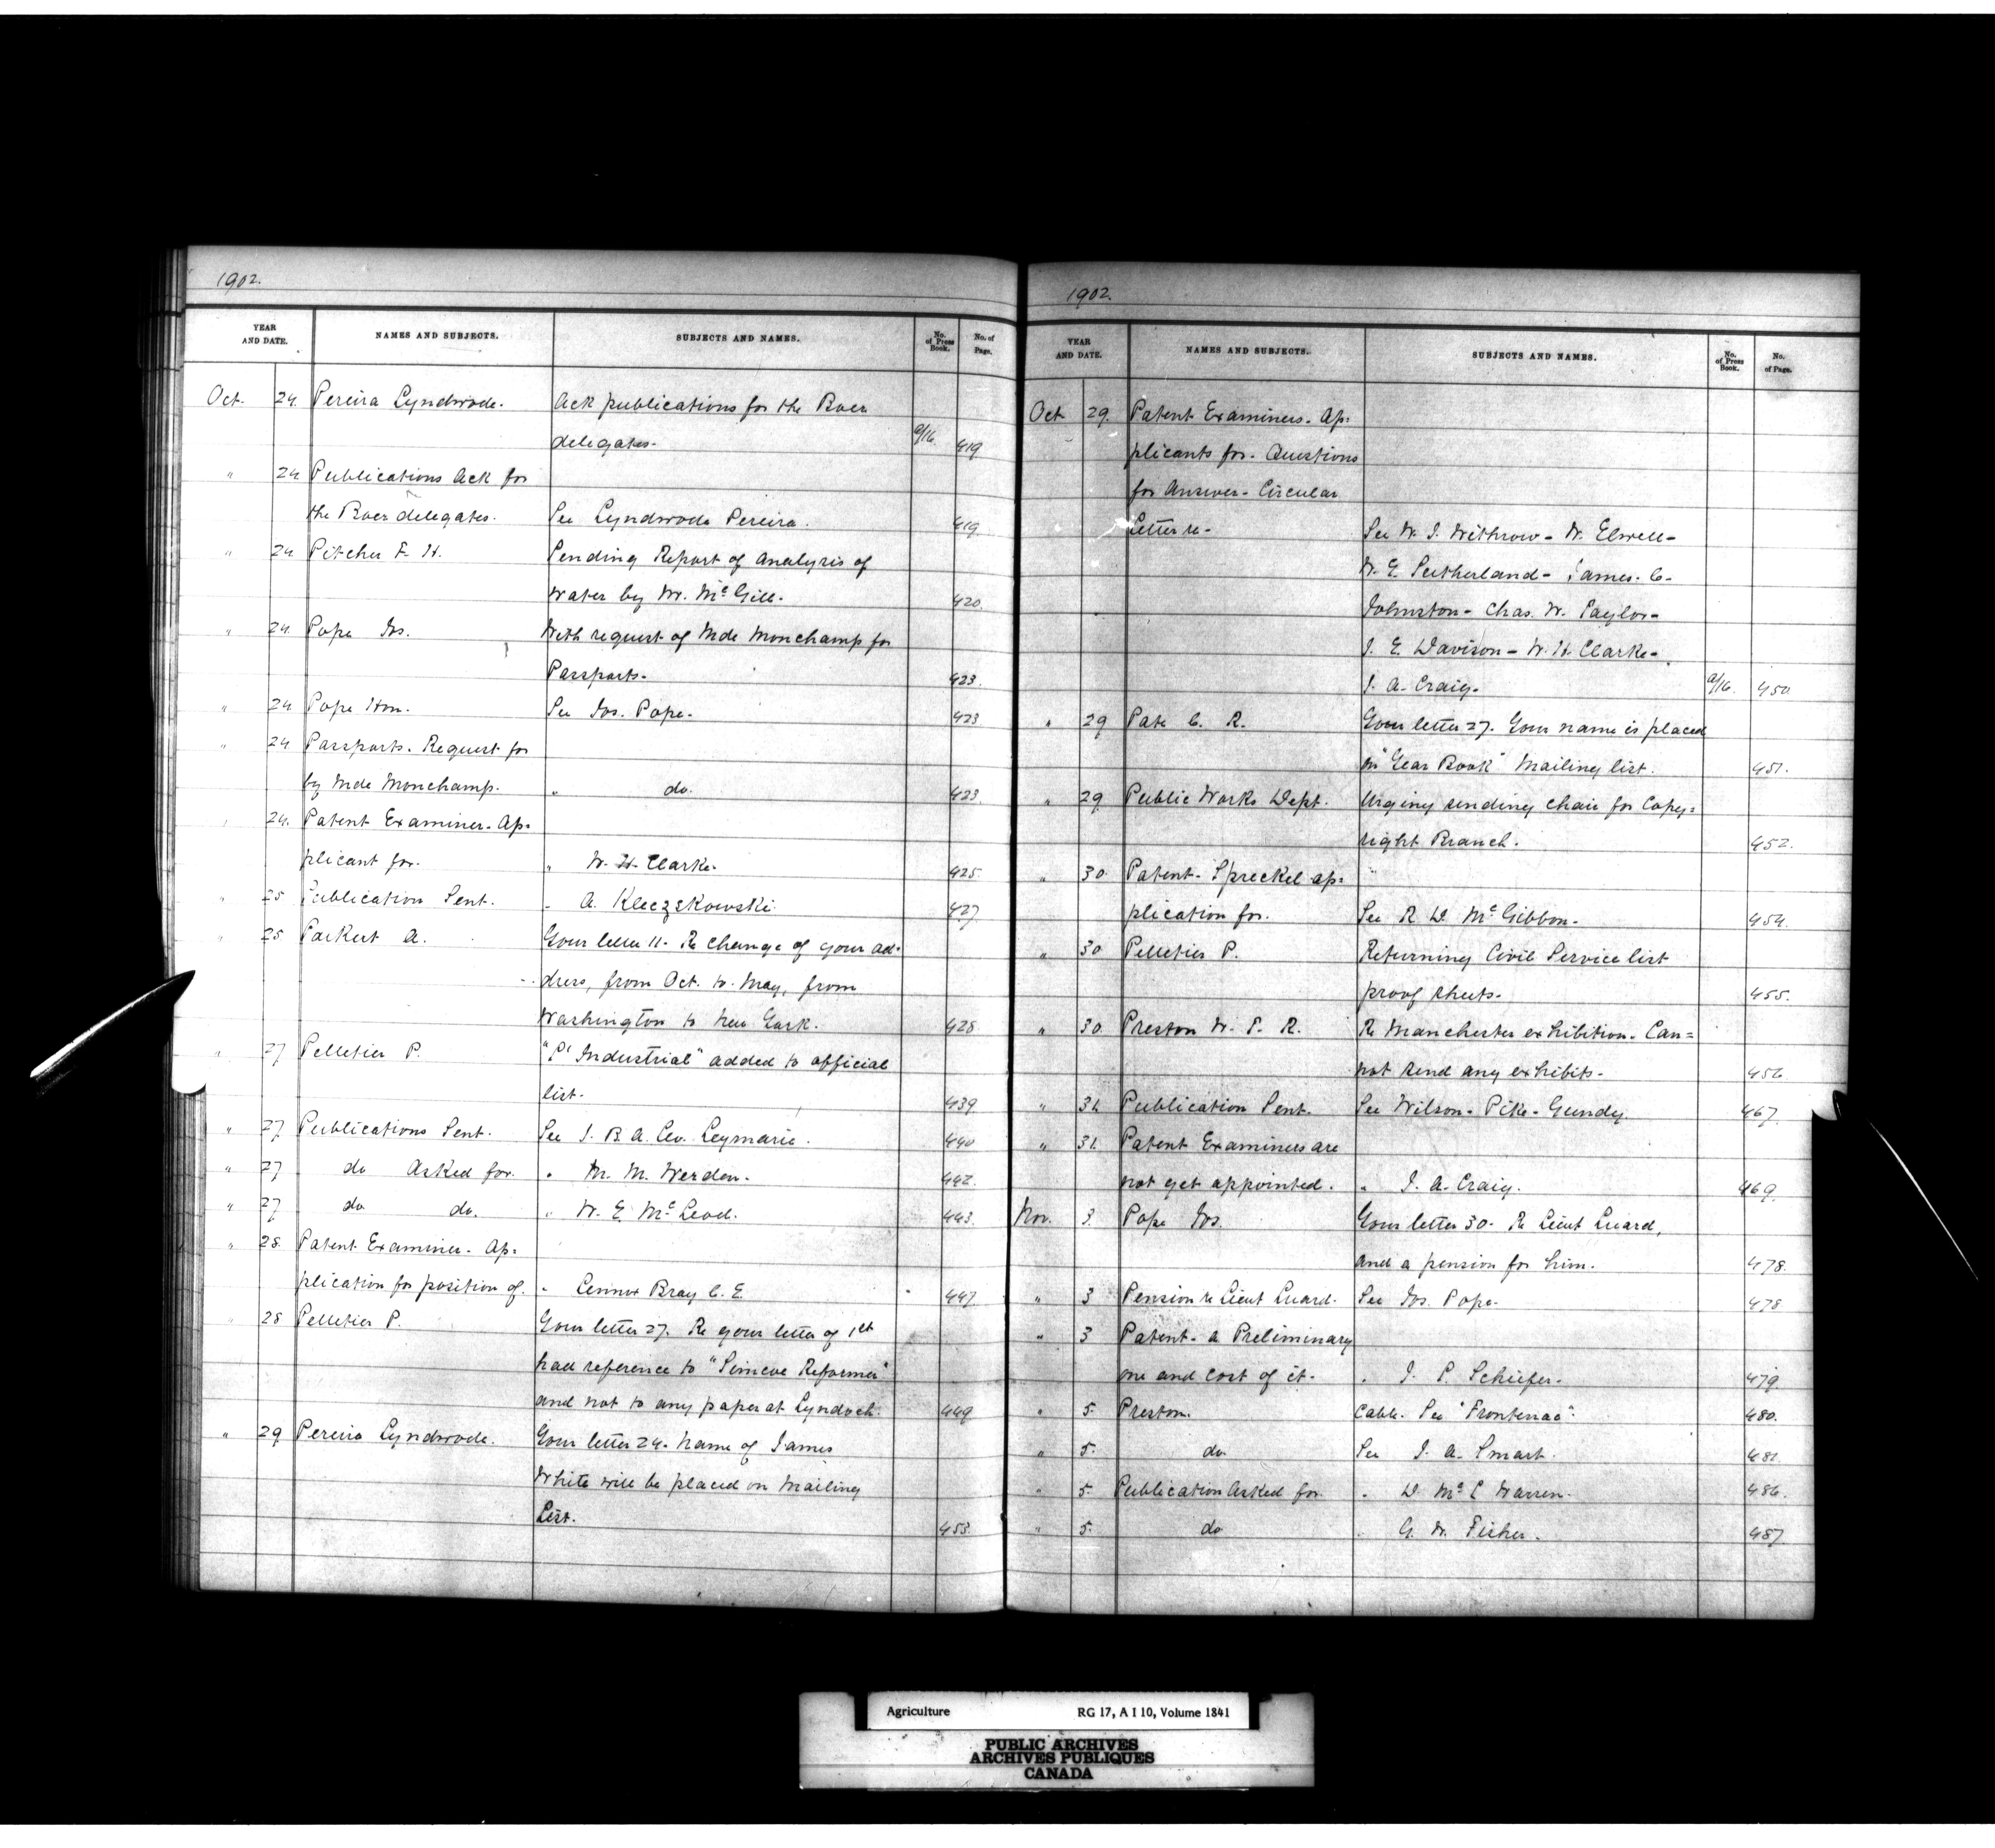 1902.
YEAR AND DATE. NAMES AND SUBJECTS. SUBJECTS AND NAMES. No. of Press Book. No. of Page.
Oct. 24. Pereira Lyndwode. Ack publications for the Boer
delegates. a/16. 419
" 24 Publications Ack for
the Boer delegates. See Lyndwode Pereira. 419
" 24 Pitcher F. H. Pending Report of Analysis of
water by Mr. McGill. 420.
" 24. Pope Jos. With request of Mde Monchamp for
Passports. 423.
" 24 Pope Hon. See Jos. Pope. 423
" 24 Passports. Request for
by Mde Monchamp. " do. 423.
" 24. Patent Examiner. Ap=
plicant for. " W. H. Clarke. 425
" 25 Publication Sent. " A. Kleczkowski 427
" 25 Parkert A. Your letter 11. Re change of your ad=
dress, from Oct. to May, from
Washington to New York. 428
" 27 Pelletier P. "L' Industrial" added to official
list. 439
" 27 Publications Sent. See J. B. A. Leo. Leymarie. 440
" 27 do Asked for. " M. M. Werden. 442.
" 27 do do. " W. E. McLeod. 443.
" 28 Patent Examiner. Ap=
plication for position of. " Lennox Bray C. E. 447
" 28 Pelletier P. Your letter 27. Re your letter of 1st
had reference to "Simcoe Reformer"
and not to any paper at Lyndoch. 449
" 29 Pereira Lyndwode. Your letter 24. Name of James
White will be placed on Mailing
List. 453.
1902.
YEAR AND DATE. NAMES AND SUBJECTS. SUBJECTS AND NAMES. No. of Press Book. No. of Page.
Oct 29. Patent Examiners. Ap=
plicants for. Questions
for Answer. Circular
Letter re. See W. J. Withrow. W. Elwell.
W. E. Sutherland. James. C.
Johnston. Chas. W. Taylor.
J. E. Davison. W. H. Clarke.
J. A. Craig. a/16. 450
" 29 Pate C. R. Your letter 27. Your name is placed
on "Year Book" Mailing list. 451.
" 29 Public Works Dept. Urging sending chair for Copy=
right Branch. 452.
" 30 Patent. Spreckel ap=
plication for. See R. D. McGibbon. 454.
" 30 Pelletier P. Returning Civil Service list
proof sheets. 455.
" 30. Preston W. T. R. Re Manchester exhibition. Can=
not send any exhibits. 456
" 31. Publication Sent. See Wilson. Pike. Gundy. 467.
" 31. Patent Examiners are
not yet appointed. " J. A. Craig. 469.
Nov. 3. Pope Jos. Your letter 30. Re Lieut Luard,
and a pension for him. 478.
" 3 Pension re Lieut Luard. See Jos. Pope. 478
" 3 Patent. a Preliminary
one and cost of it. " J. P. Schiefer. 479.
" 5. Preston. Cable. See "Frontenac". 480.
" 5. do See J. A. Smart. 481.
" 5. Publication Asked for. " D. McL Warren. 486.
" 5. do " G. W. Fisher. 487.
Agriculture RG 17, A I 10, Volume 1841
PUBLIC ARCHIVES
ARCHIVES PUBLIQUES
CANADA